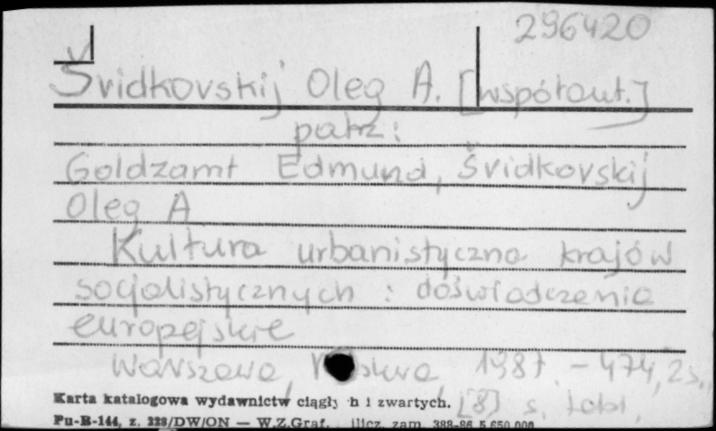 296420
Švidkovskij Oleg A. [współaut.]
patrz:
Goldzamt Edmund, Švidkovskij
Oleg A
Kultura urbanistyczna krajów
socjalistycznych : doświadczenia
europejskie
Warszawa, Moskwa, 1987. - 474, 2 s.,
[8] s. tabl.
Karta katalogowa wydawnictw ciągłych i zwartych.
Pu-B-144, z. 228/DW/ON — W.Z.Graf. zam. 388-86 5.650.000